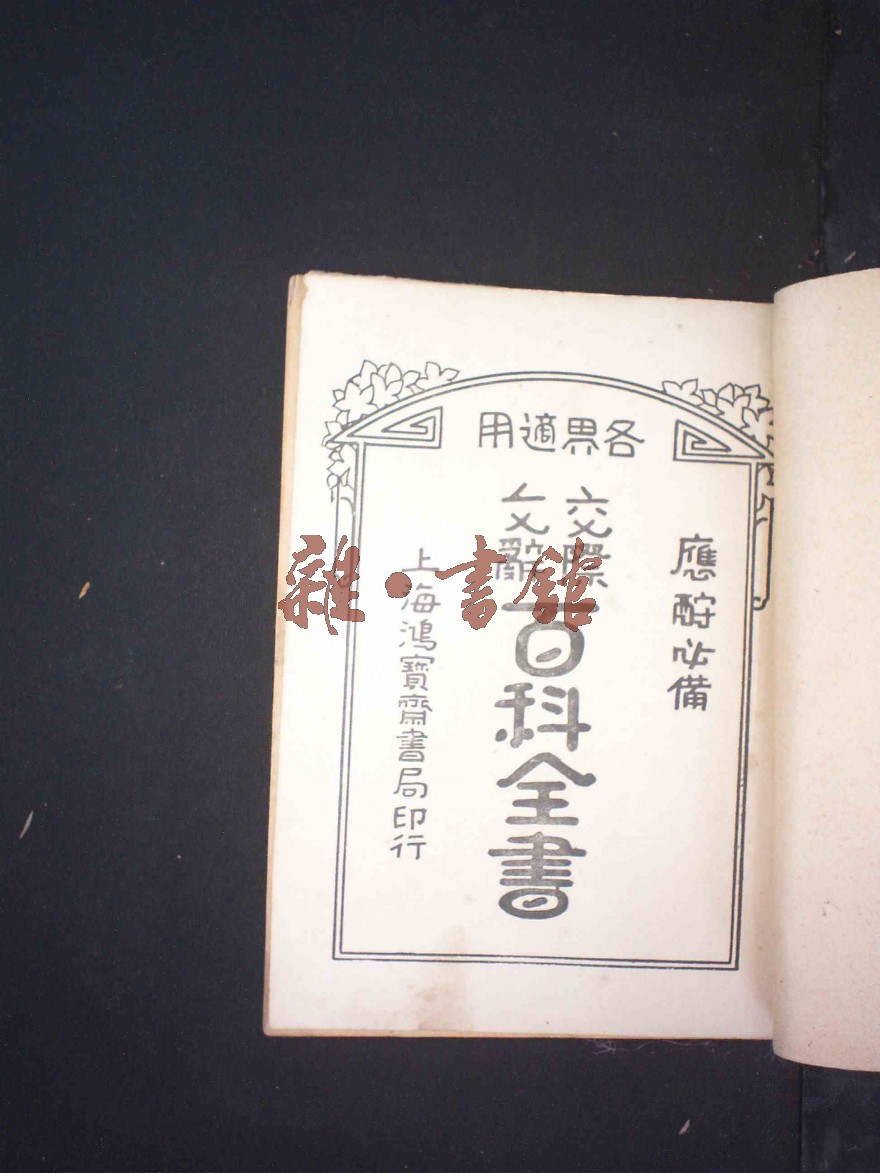 各界適用
應酬必備
交際
文辭
百科全書
上海鴻寶齋書局印行
雜·書館